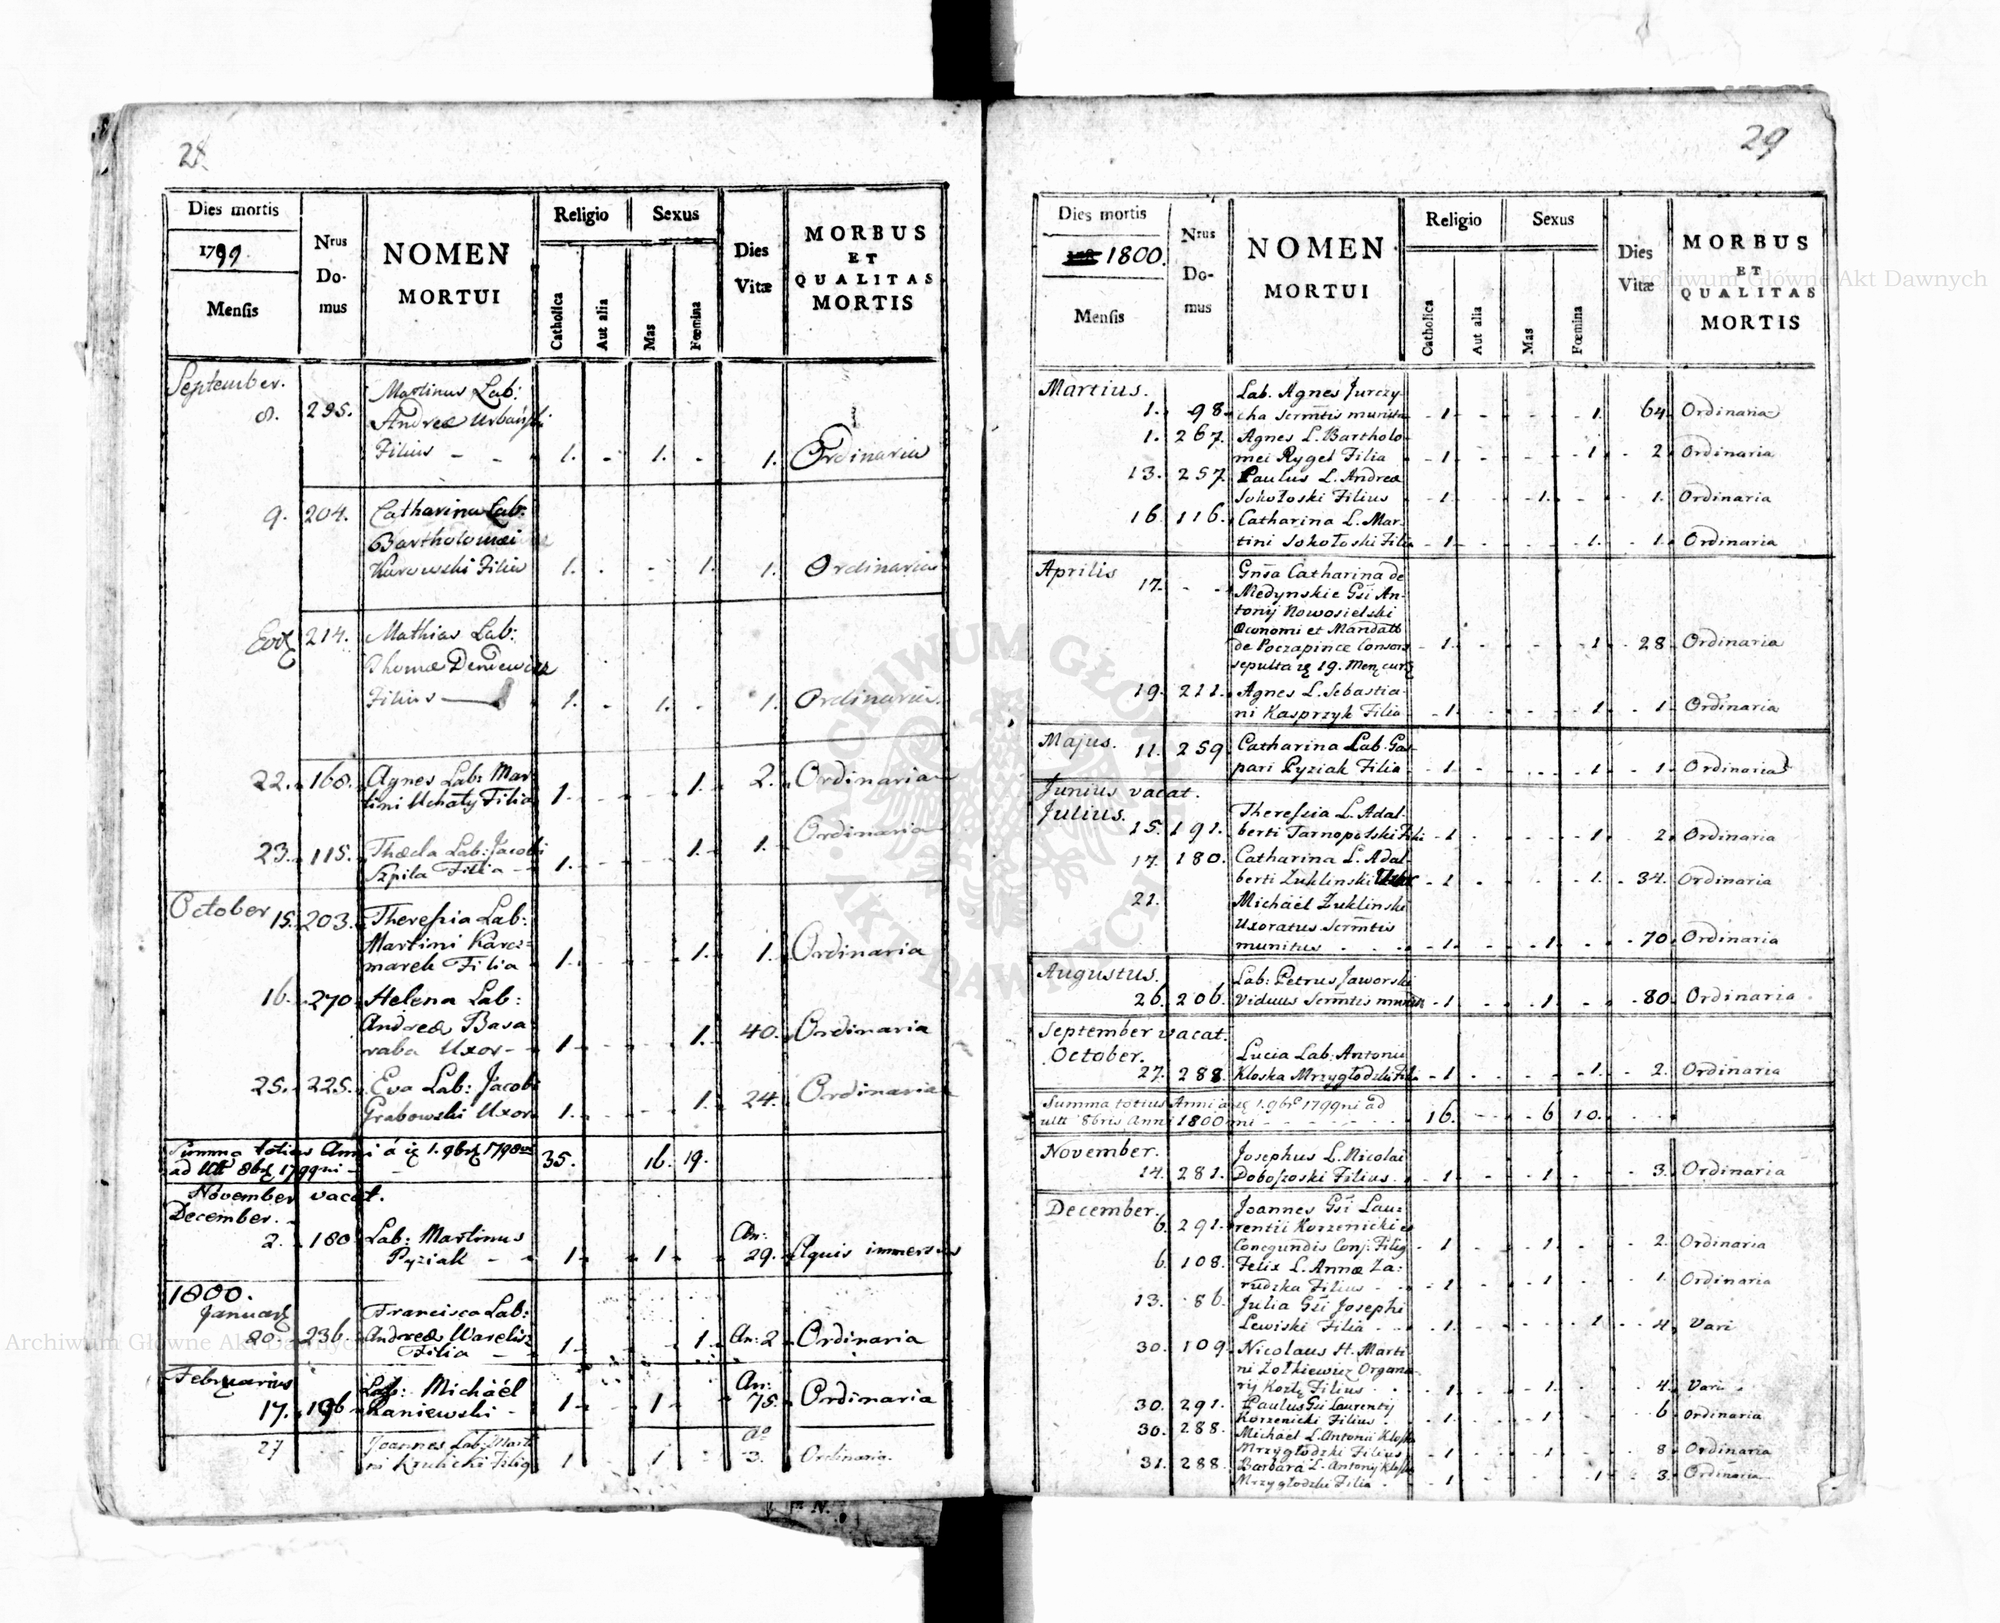 28
Dies mortis
1799.
Mensis
Nrus Do-mus
NOMEN MORTUI
Religio
Catholica
Aut alia
Sexus
Mas
Fœmina
Dies Vitæ
MORBUS ET QUALITAS MORTIS
September.
Martinus Lab:
8. 295. Andreæ Urbański
Filius - - 1. - 1. - 1. Ordinaria
9. 204. Catharina Lab:
Bartholomæi
Karowski Filia 1. - - 1. 1. Ordinaria
214. Mathias Lab:
Thomæ
Filius 1. - 1. - 1. Ordinaria
22. 168. Agnes Lab: Mar-
tini Uchaty Filia 1. - - 1. 2. Ordinaria
23. 115. Thecla Lab: Jacobi
Szpila Filia 1. - - 1. 1. Ordinaria
October 15. 203. Theressia Lab:
Martini Karcz-
marek Filia 1. - - 1. 1. Ordinaria
16. 270. Helena Lab:
Andreæ Basa-
raba Uxor - 1. - - 1. 40. Ordinaria
25. 225. Eva Lab: Jacobi
Grabowski Uxor 1. - - 1. 24. Ordinaria
Summa totius Anni á 1. 9bris 1798
ad Ult 8bris 1799ni - 35. 16. 19.
November vacat.
December.
2. 180 Lab: Martinus An:
Pyziak - - 1 - 1 - 29. Aquis immersus
1800.
Januar
20. 236. Francisca Lab:
Andreæ
Filia 1. - - 1. An: 2 Ordinaria
Februarius
17. 196 Lab: Michaël An:
Raniewski - 1 - 1 - 75. Ordinaria
27 Joannes Lab. Marti
ni Krulicki 1 1 3. Ordinaria.
29
Dies mortis
1800.
Mensis
Nrus Do-mus
NOMEN MORTUI
Religio
Catholica
Aut alia
Sexus
Mas
Fœmina
Dies Vitæ
MORBUS ET QUALITAS MORTIS
Martius. Lab. Agnes Jurczy-
1. 98. cha Scrmtis munita - 1 - - - 1. 64. Ordinaria
1. 267. Agnes L. Bartholo-
mei Rygel Filia - 1 - - - 1 - 2 Ordinaria
13. 257. Paulus L. Andreæ
Sokołoski Filius - 1 - - 1. - - 1. Ordinaria
16. 116. Catharina L. Mar-
tini Sokołoski Filia - 1 - - - 1. - 1. Ordinaria
Aprilis
17. - - Gnsa Catharina de
Medynskie Gsi An-
tonij Nowosielski
Œconomi et Mandatt
de Poczapince Consors - 1. - - - 1 - 28 Ordinaria
sepulta 19. Men.
19. 211. Agnes L. Sebastia-
ni Kasprzyk Filia - 1 - - - 1 - 1 Ordinaria
Majus. 11. 259 Catharina Lab. Gas-
pari Pyziak Filia - 1 - - - 1 - 1 Ordinaria
Junius vacat.
Julius.
15. 191. Theressia L. Adal-
berti Tarnopolski Filia - 1 - - - 1 - 2 Ordinaria
17. 180. Catharina L. Adal-
berti Zuklinski Uxor - 1 - - - 1. - 34. Ordinaria
21. Michaël Zuklinski
Uxoratus Scrmtis
munitus - - - 1 - - 1 - - 70 Ordinaria
Augustus. Lab: Petrus Jaworski
26. 206. Viduus Scrmtis munitus - 1 - - 1 - - 80. Ordinaria
September vacat.
October. Lucia Lab: Antonii
27. 288. Kloska Mrzygłodzki Filia - 1 - - - 1. - 2. Ordinaria
Summa totius Anni á 1. 9bris 1799ni ad
ult 8bris Anni 1800 mi - - - 16. - - 6 10. - -
November. Josephus L. Nicolai
14. 281. Doboszoski Filius. - 1 - - 1 - - 3. Ordinaria
December. Joannes Gsi Lau-
6. 291. rentii Korzenicki et
Conegundis Conj: - 1 - - 1. - - 2. Ordinaria
6. 108. Felix L. Annæ Za-
rudzka Filius - - 1 - - 1 - - 1. Ordinaria
13. 86. Julia Gsi Josephi
Lewiski Filia - - 1. - - - 1 - 4. Vari
30. 109. Nicolaus H. Marti-
ni Żołkiewicz Organa-
rij Filius - - 1. - - 1. - - 4. Vari
30. 291. Paulus Gsi Laurentij
Korzenicki Filius - 1. - - 1 - - 6 Ordinaria
30. 288. Michael L. Antonii Kloska
Mrzygłodzki Filius - 1 - - 1 - - 8 Ordinaria
31. 288. Barbara L. Antonij Kloska
Mrzygłodzki Filia - 1 - - - 1 - 3. Ordinaria
Archiwum Główne Akt Dawnych
Archiwum Główne Akt Dawnych
ARCHIWUM GŁÓWNE AKT DAWNYCH